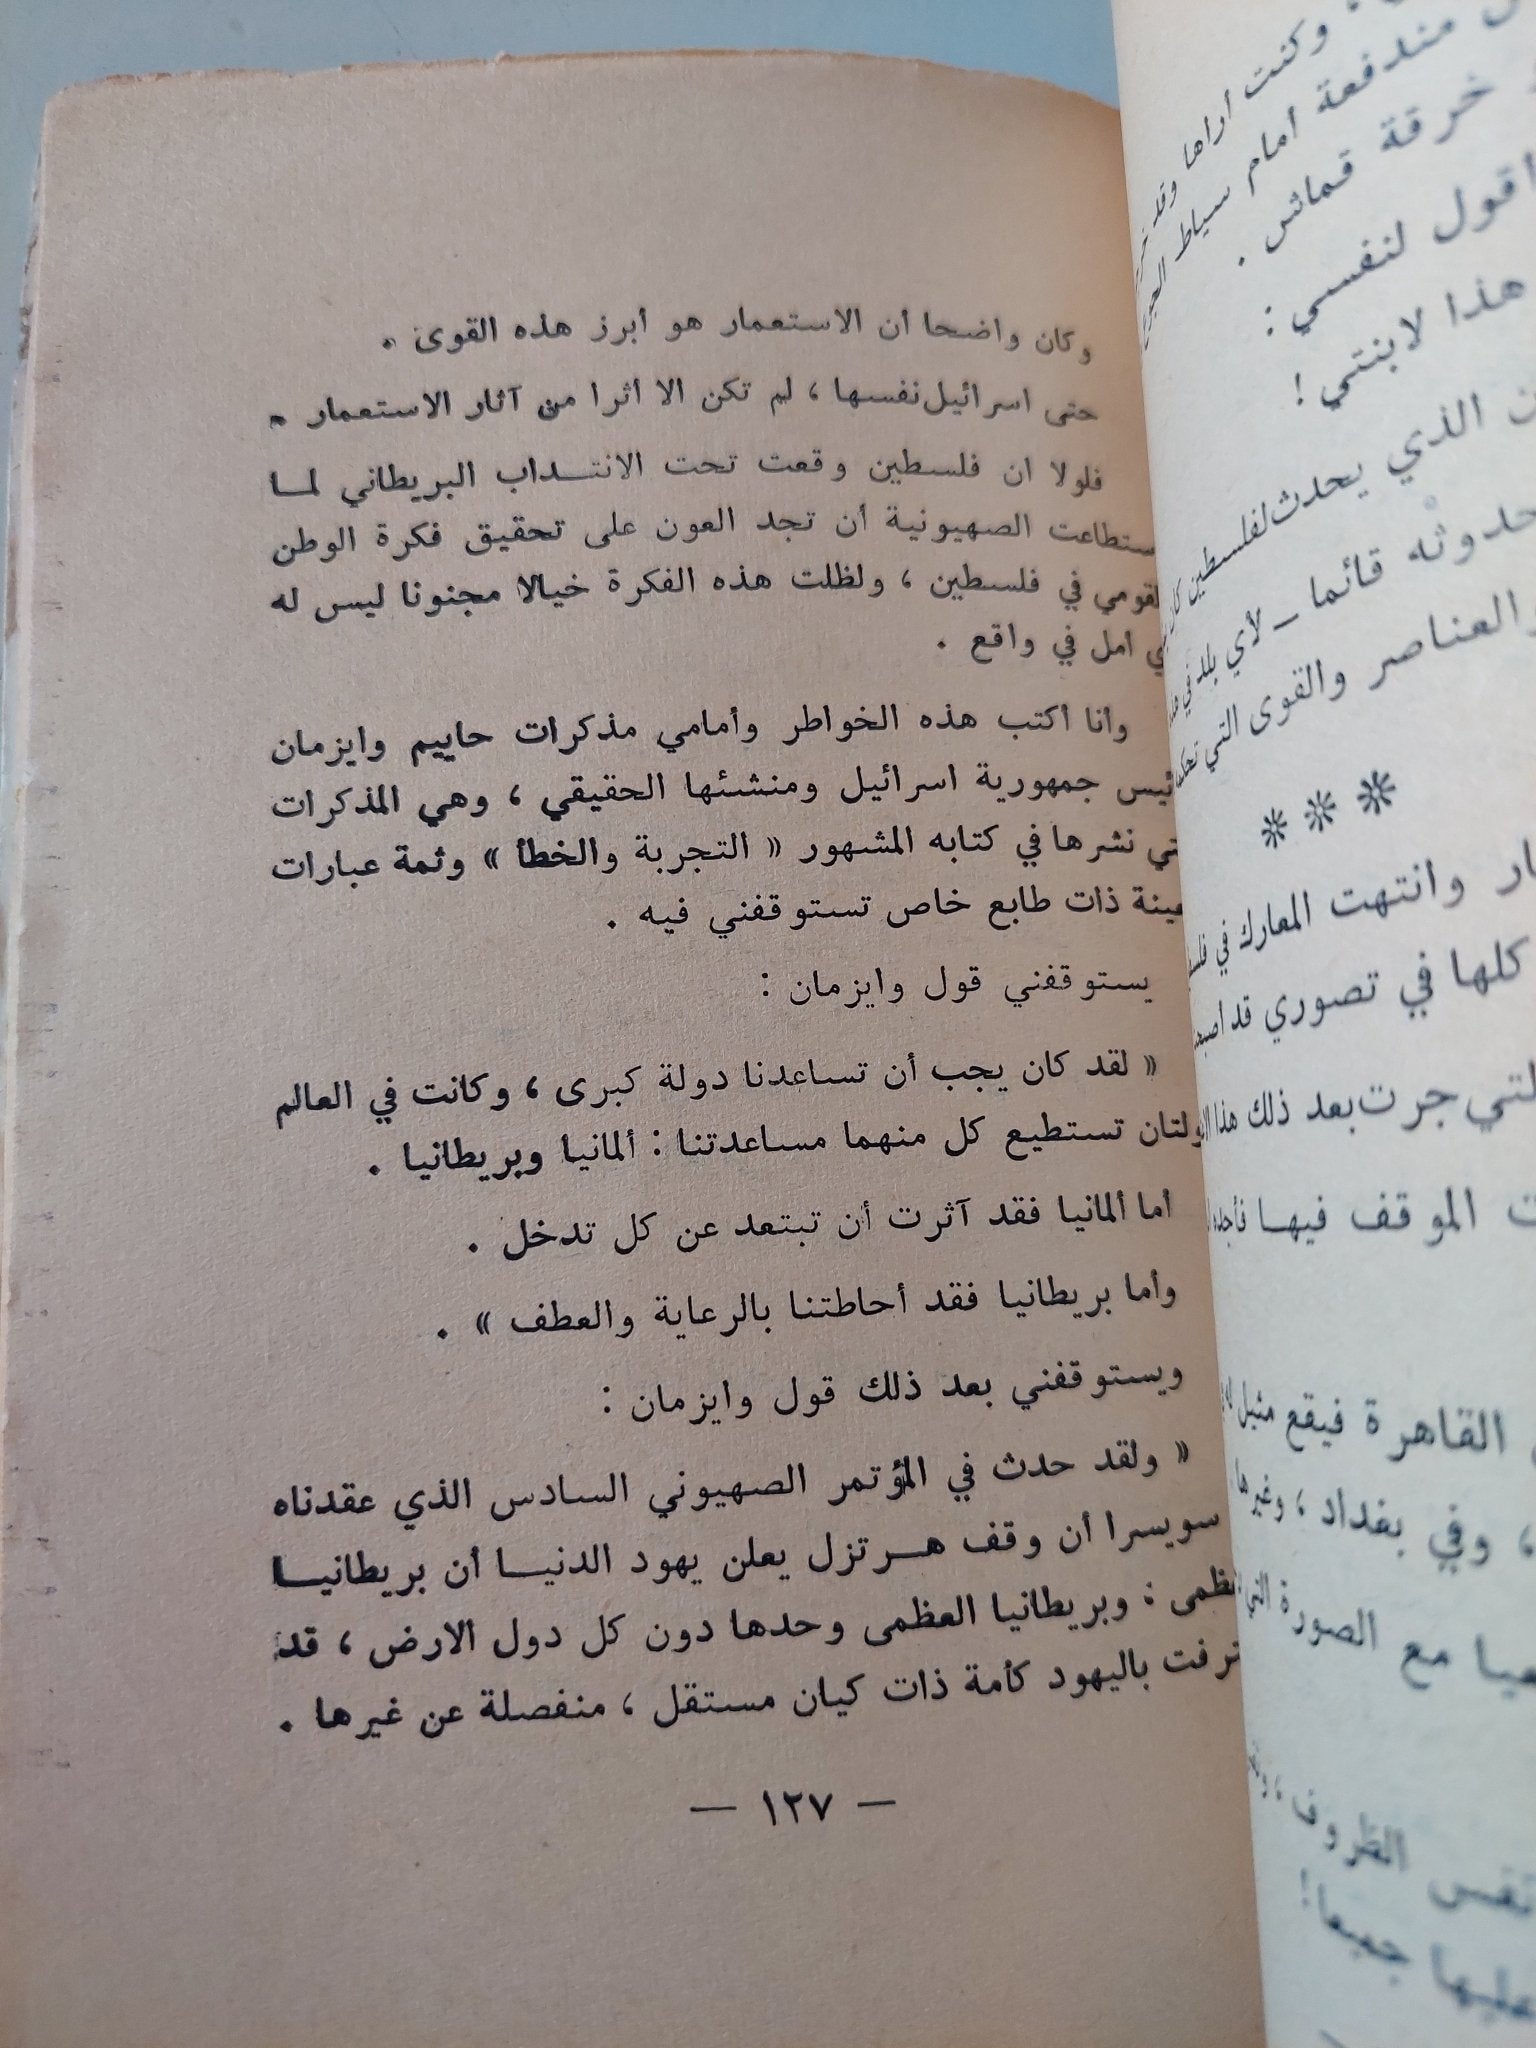 وكان واضحا أن الاستعمار هو أبرز هذه القوى .
حتى اسرائيل نفسها ، لم تكن الا اثرا من آثار الاستعمار .
فلولا ان فلسطين وقعت تحت الانتداب البريطاني لما
ستطاعت الصهيونية أن تجد العون على تحقيق فكرة الوطن
لقومي في فلسطين ، ولظلت هذه الفكرة خيالا مجنونا ليس له
ي امل في واقع .
وأنا أكتب هذه الخواطر وأمامي مذكرات حاييم وايزمان
ئيس جمهورية اسرائيل ومنشئها الحقيقي ، وهي المذكرات
تي نشرها في كتابه المشهور « التجربة والخطأ » وثمة عبارات
عينة ذات طابع خاص تستوقفني فيه .
يستوقفني قول وايزمان :
« لقد كان يجب أن تساعدنا دولة كبرى ، وكانت في العالم
ولتان تستطيع كل منهما مساعدتنا : ألمانيا وبريطانيا .
أما ألمانيا فقد آثرت أن تبتعد عن كل تدخل .
وأما بريطانيا فقد أحاطتنا بالرعاية والعطف » .
ويستوقفني بعد ذلك قول وايزمان :
« ولقد حدث في المؤتمر الصهيوني السادس الذي عقدناه
سويسرا أن وقف هرتزل يعلن يهود الدنيا أن بريطانيا
عظمى : وبريطانيا العظمى وحدها دون كل دول الارض ، قد
ترفت باليهود كأمة ذات كيان مستقل ، منفصلة عن غيرها .
— ١٢٧ —
وكنت اراها وقد
مندفعة أمام سياط
خرقة قماش .
اقول لنفسي :
هذا لابنتي !
الذي يحدث لفلسطين كان
حدوثه قائما – لأي بلد في
والعناصر والقوى التي
***
وانتهت المعارك في
كلها في تصوري قد
لتي جرت بعد ذلك هذا
الموقف فيها
القاهرة فيقع مثيل
، وفي بغداد ، وغيرها
مع الصورة التي
نفس الظروف ،
جميعا !